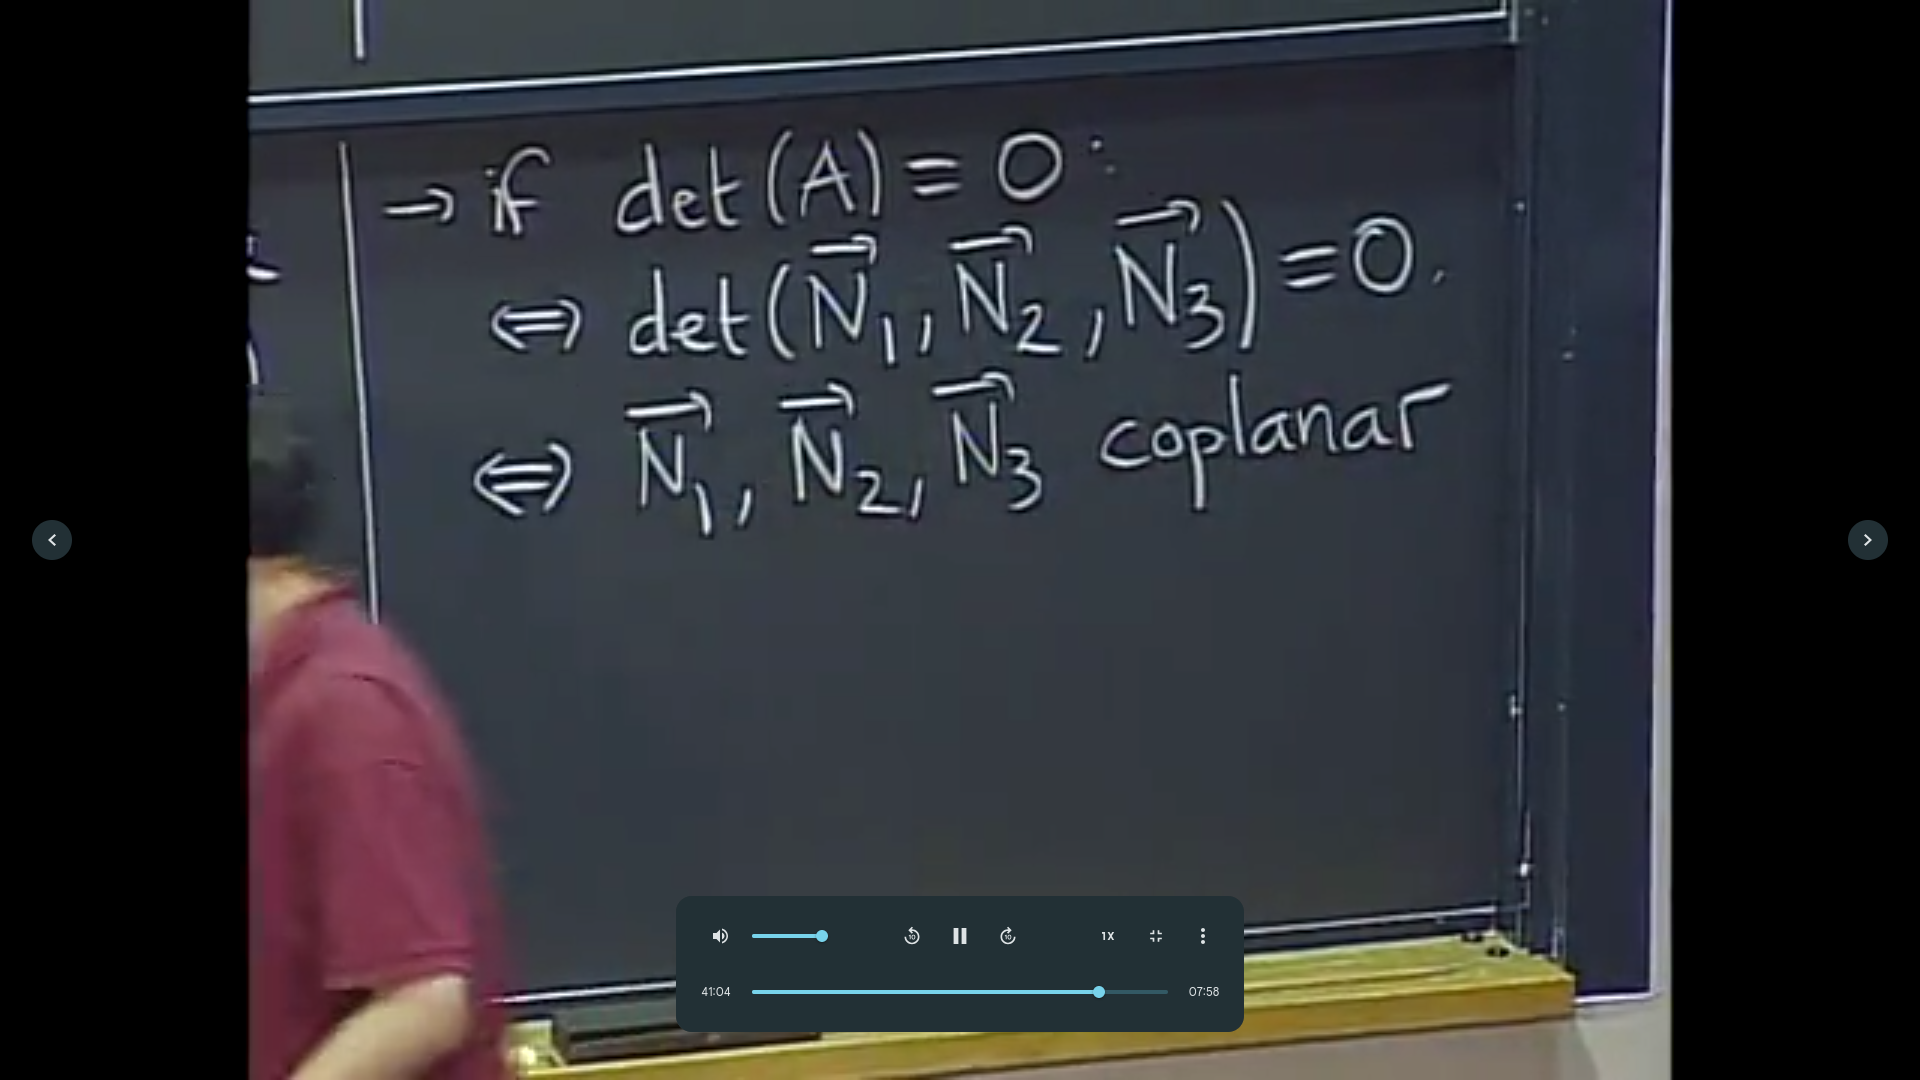 → if det(A) = 0:
⇔ det(N⃗₁, N⃗₂, N⃗₃) = 0.
⇔ N⃗₁, N⃗₂, N⃗₃ coplanar
10 10 1X
41:04 07:58